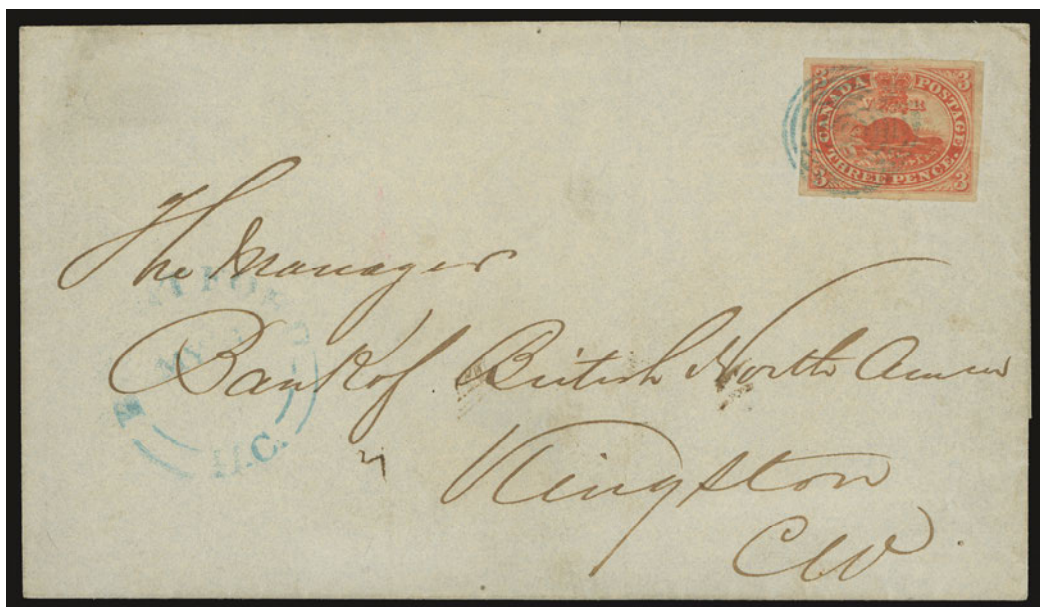 3 3
CANADA POSTAGE
V R
THREE PENCE.
3 3
The Manager
Bank of British North Amer
Kingston
CW
U.C.